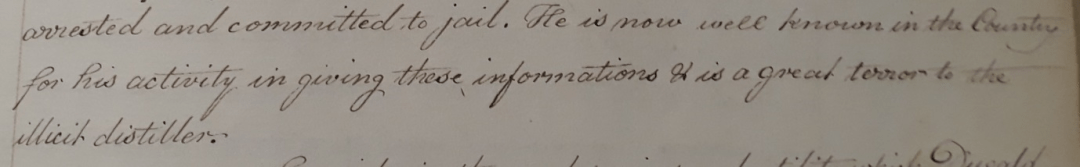 arrested and committed to jail. He is now well known in the County
for his activity in giving these informations & is a great terror to the
illicit distiller.
which Dugald